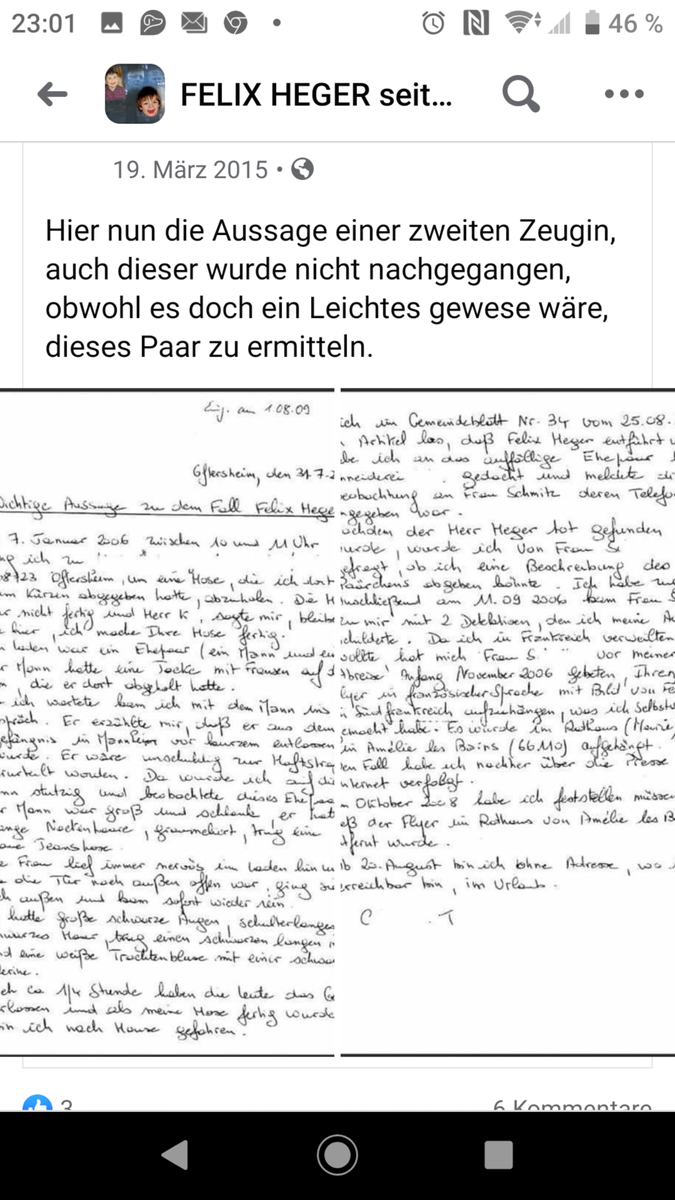 23:01
46 %
FELIX HEGER seit...
19. März 2015 •
Hier nun die Aussage einer zweiten Zeugin,
auch dieser wurde nicht nachgegangen,
obwohl es doch ein Leichtes gewese wäre,
dieses Paar zu ermitteln.
Eig. am 1.08.09
Oftersheim, den 31.7.2
Wichtige Aussage zu dem Fall Felix Hege
7. Januar 2006 zwischen 10 und 11 Uhr
ng ich zu
68723 Oftersheim, um eine Hose, die ich dort
m Kürzen abgegeben hatte, abzuholen. Die H
ar nicht fertig und Herr K, sagte mir, bleibe
e hier, ich mache Ihre Hose fertig.
m Laden war ein Ehepaar (ein Mann und ein
r Mann hatte eine Jacke mit Fransen auf d
, die er dort abgeholt hatte.
ich wartete kam ich mit dem Mann ins
präch. Er erzählte mir, daß er aus dem
efängnis in Mannheim vor kurzem entlassen
wurde. Er wäre unschuldig zur Haftstraf
rurteilt worden. Da wurde ich auf die
nn stutzig und beobachtete dieses Ehepaar
r Mann war groß und schlank, er hat
ange Nackenhaare, graumeliert, trug eine
aue Jeanshose.
e Frau lief immer nervös im Laden hin u
die Tür nach außen offen war, ging sie
ch außen und kam sofort wieder rein.
hatte große schwarze Augen, schulterlanges
hwarzes Haar, trug einen schwarzen langen
nd eine weiße Trachtenbluse mit einer schwar
ch ca 1/4 Stunde haben die Leute das Ge
rlassen und als meine Hose fertig wurde
in ich nach Hause gefahren.
ich im Gemeindeblatt Nr. 34 vom 25.08.
Artikel las, daß Felix Heger entführt w
be ich an das auffällige Ehepaar
hneiderei gedacht und meldete di
eobachtung an Frau Schmitz deren Telefo
ngegeben war.
achdem der Herr Heger tot gefunden
wurde, wurde ich von Frau S
efragt, ob ich eine Beschreibung des
Pärchens abgeben könnte. Ich habe zu
nschließend am 11.09 2006 kam Frau S
zu mir mit 2 Detektiven, den ich meine Au
childerte. Da ich in Frankreich verweilen
wollte hat mich Frau S. vor meiner
Abreise Anfang November 2006 gebeten, Ihren
lyer in französischer Sprache mit Bild von Fe
n Südfrankreich aufzuhängen, was ich selbstv
emacht habe. Es wurde im Rathaus (Mairie
in Amélie les Bains (66110) aufgehängt.
en Fall habe ich nachher über die Presse
nternet verfolgt.
m Oktober 2008 habe ich feststellen müssen
aß der Flyer im Rathaus von Amélie les B
tfernt wurde.
b 20. August bin ich ohne Adresse, wo i
erreichbar bin, im Urlaub.
C T
3
6 Kommentare